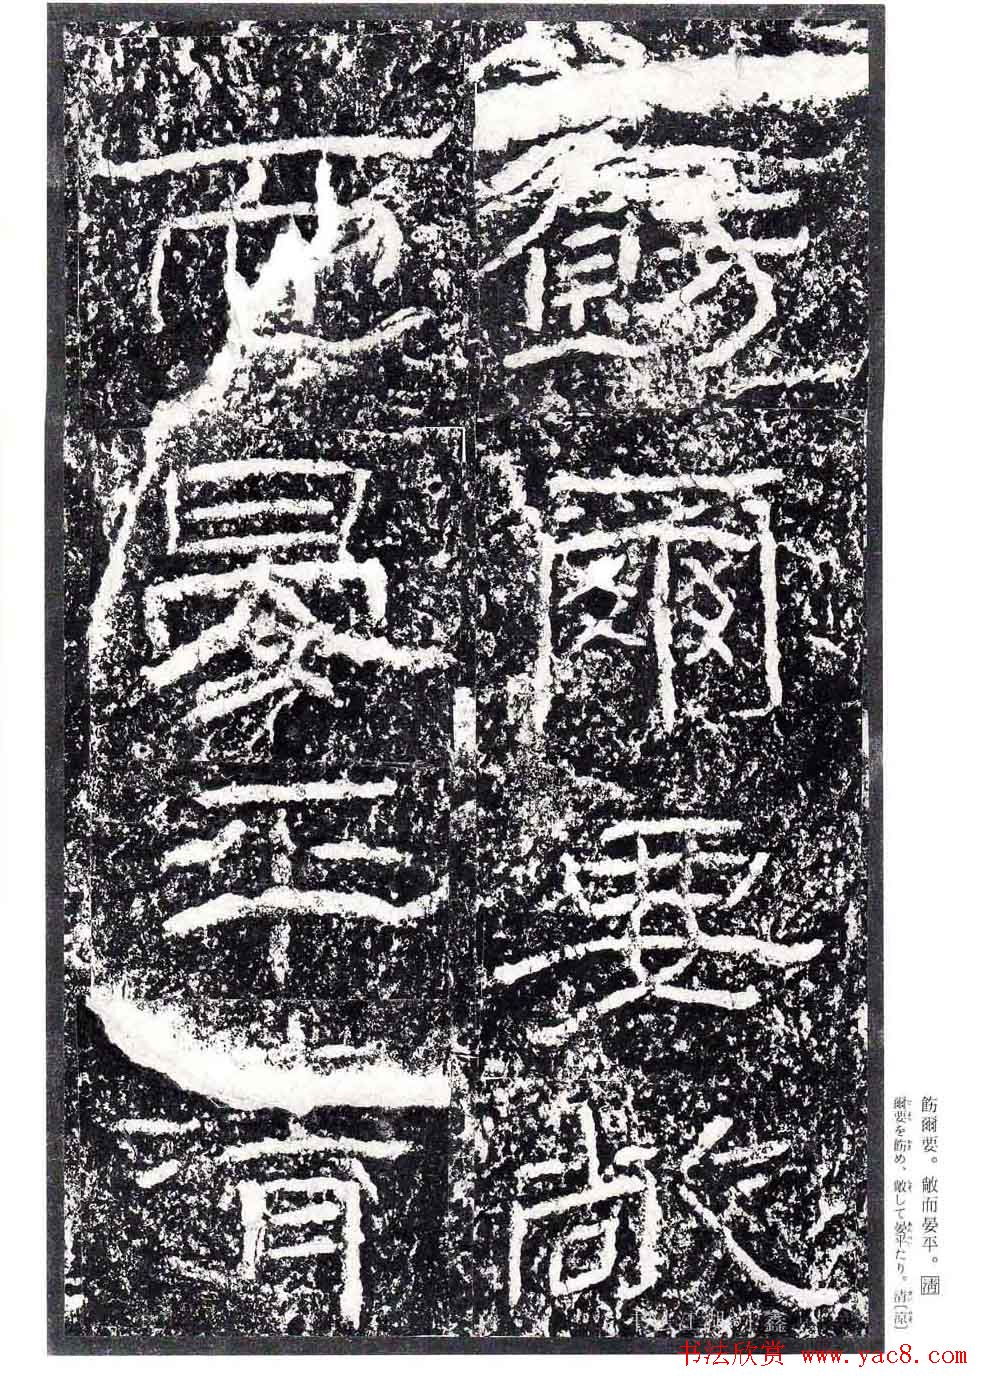 飭爾要敞
而晏平清
飭爾要。敞而晏平。清
爾要を飭め、敞して晏平たり。清〔涼〕
书法欣赏 www.yac8.com